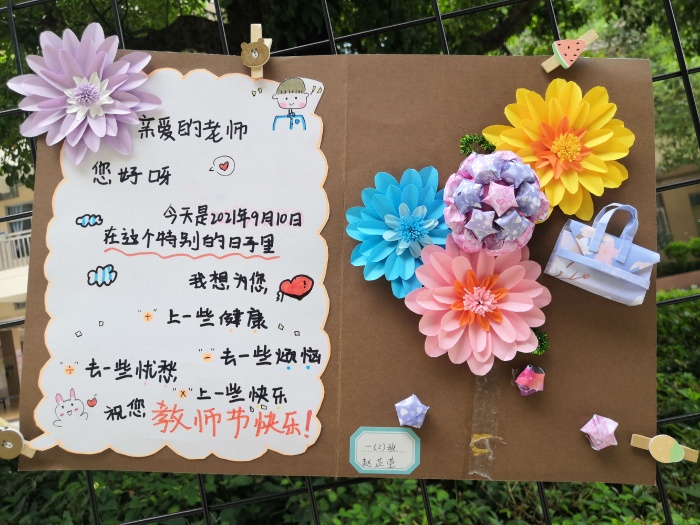 亲爱的老师
您好呀
今天是2021年9月10日
在这个特别的日子里
我想为您
"+"上一些健康
"÷"去一些忧愁 "-"去一些烦恼
"x"上一些快乐
祝您教师节快乐!
一(2)班